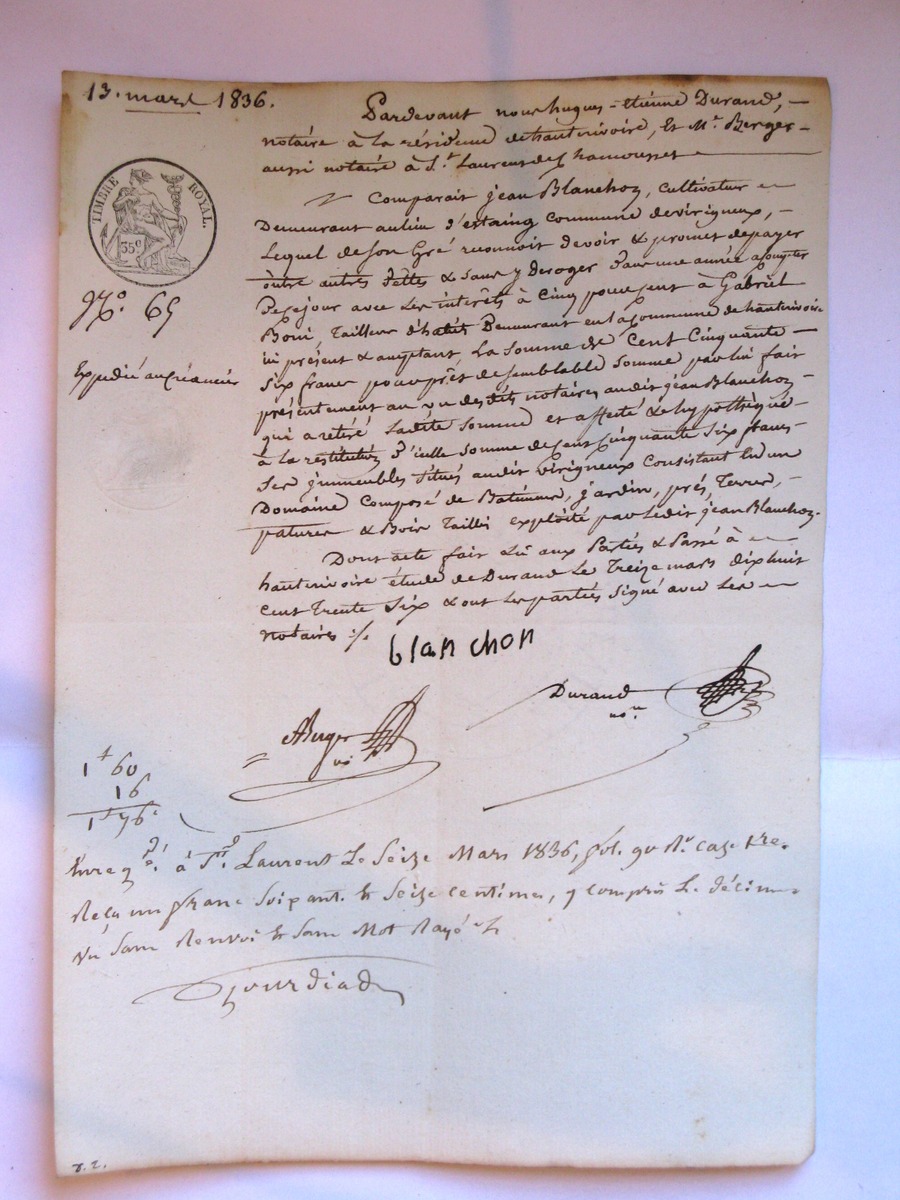 13. mars 1836.
Pardevant nous hugues-étienne Durand,
notaire à la résidence de hauterivoire, Et Me. Berger
aussi notaire à St. Laurent de Chamousset
TIMBRE ROYAL.
35c
No. 65
Expédié au Créancier
Comparait jean Blanchon, cultivateur
Demeurant au lieu d'estaing commune de virigneux,
Lequel de son Gré reconnoit devoir & promet de payer
outre autres dettes & sans y deroger dans une année a compter
De ce jour avec les intérêts à Cinq pour cent à Gabriel
Boni, Tailleur d'habits Demeurant en la commune de hauterivoire
ici présent & acceptant, La somme de Cent Cinquante
six francs pour prêt de semblable somme par lui fait
présentement au vu des dits notaires audit jean Blanchon
qui a retiré ladite somme et affecté & hypothéqué
à la restitution d'icelle somme de cent cinquante six francs
ses immeubles situés audit virigneux consistant En un
Domaine composé de Batiments, jardin, prés, Terres,
patures & Bois Taillis exploité par ledit jean Blanchon.
Dont acte fait Lû aux Parties & Passé à
hauterivoire étude de Durand Le Treize mars dix huit
cent Trente six & ont les parties signé avec Les
notaires :/.
blan chon
Durand
nore
ABerger
no
1f 60
16
1f 76c
Enregé. à St. Laurent Le Seize Mars 1836, fol. 90 Ro. case 1re.
Reçu un franc soixante & seize centimes, y compris le décime
Vu sans Renvoi & sans Mot Rayé